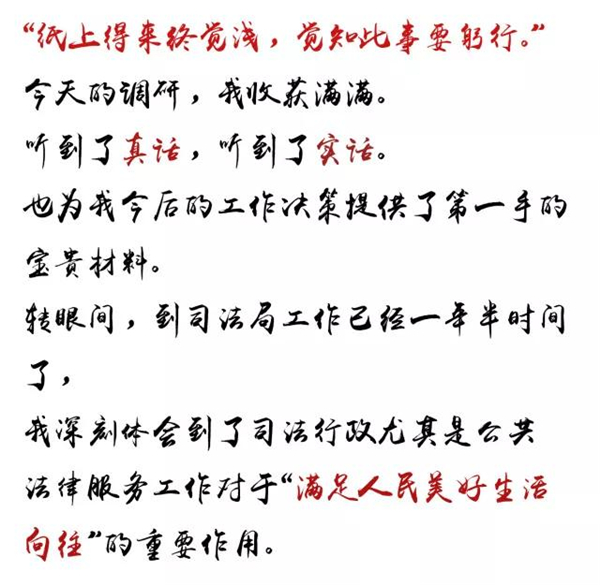 “纸上得来终觉浅，觉知此事要躬行。”
今天的调研，我收获满满。
听到了真话，听到了实话。
也为我今后的工作决策提供了第一手的
宝贵材料。
转眼间，到司法局工作已经一年半时间
了，
我深刻体会到了司法行政尤其是公共
法律服务工作对于“满足人民美好生活
向往”的重要作用。